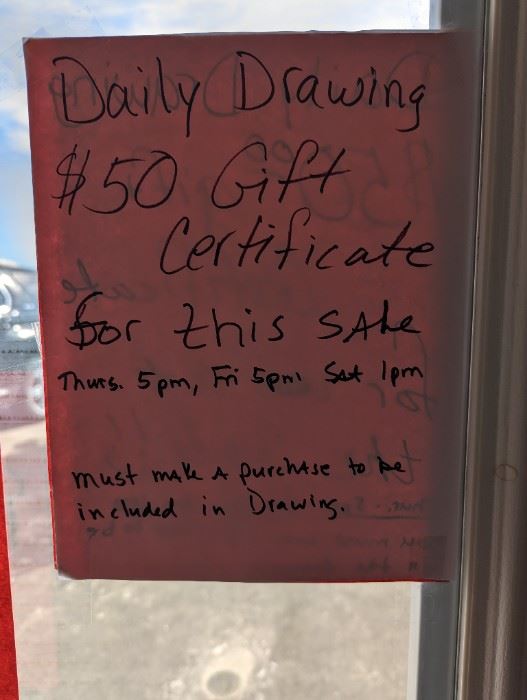 Daily Drawing
$50 Gift
Certificate
for this SAle
Thurs. 5pm, Fri 5pm Sat 1pm
must mAke A purchAse to be
included in Drawing.